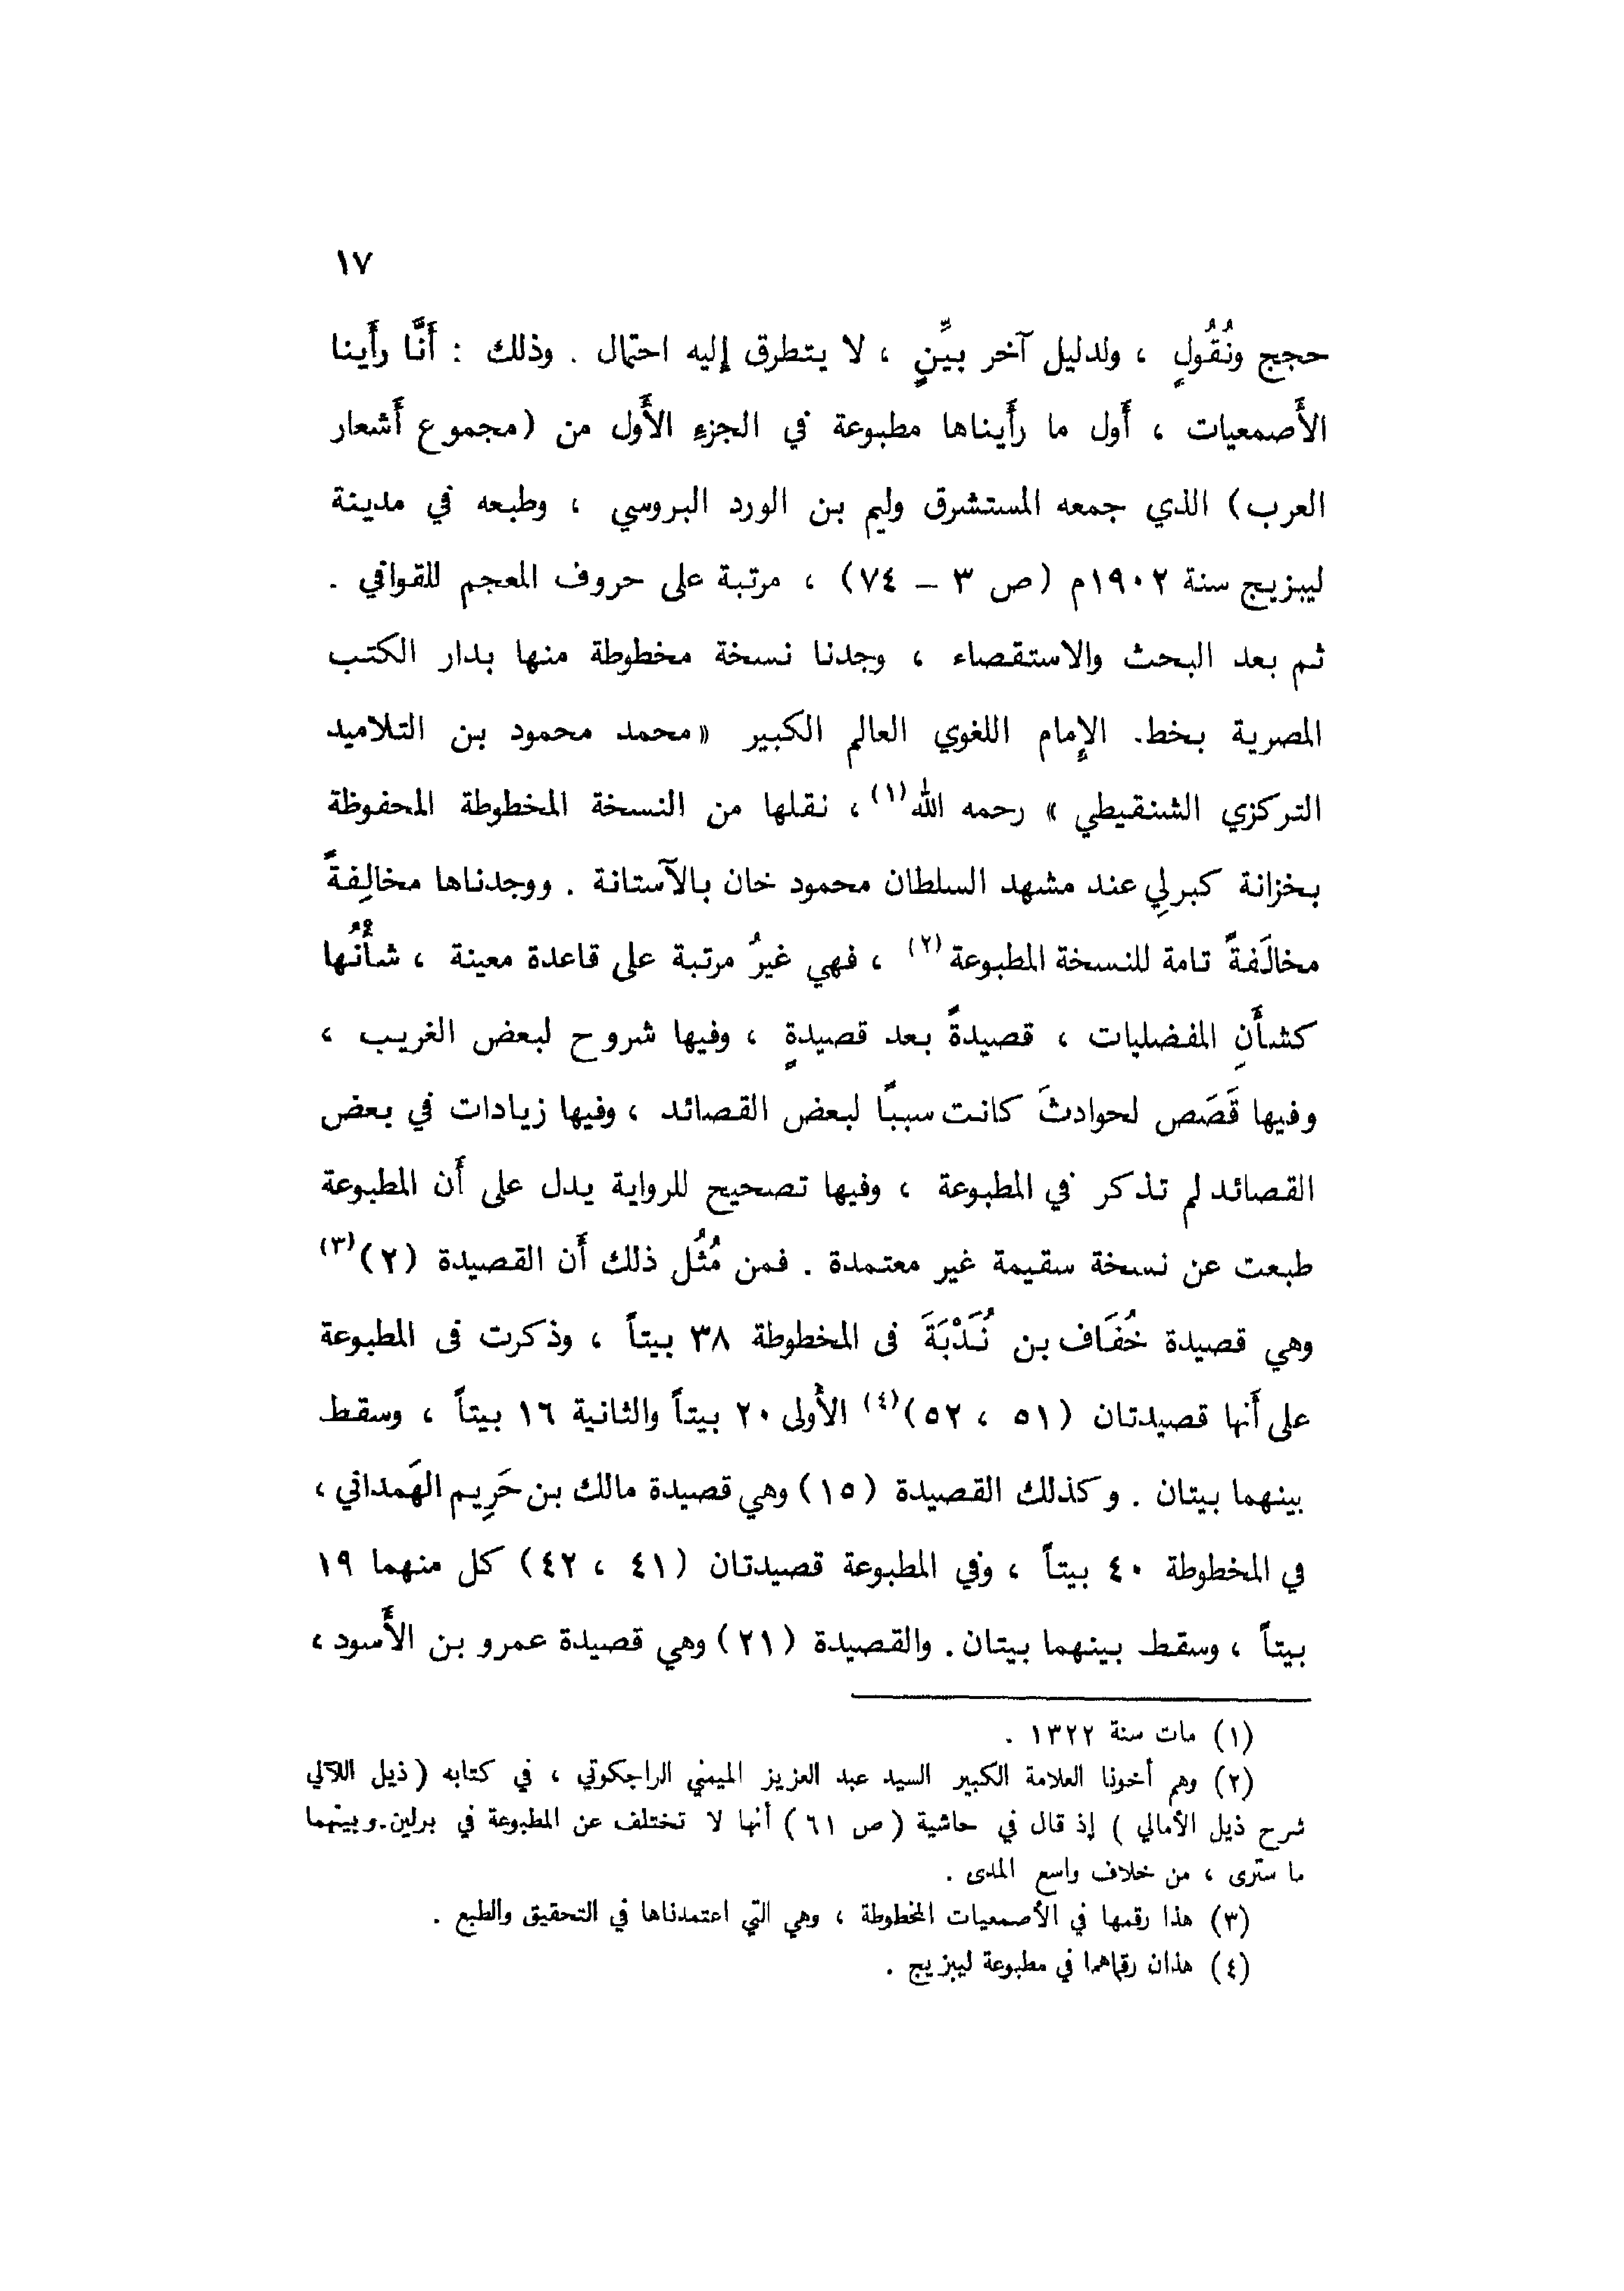 ١٧
حجج ونُقُولٍ ، ولدليل آخر بيِّنٍ ، لا يتطرق إليه احتمال . وذلك : أَنَّا رأَينا
الأَصمعيات ، أَول ما رأَيناها مطبوعة في الجزءِ الأَول من (مجموع أَشعار
العرب) الذي جمعه المستشرق وليم بن الورد البروسي ، وطبعه في مدينة
ليبزيج سنة ١٩٠٢م (ص ٣ – ٧٤) ، مرتبة على حروف المعجم للقوافي .
ثم بعد البحث والاستقصاء ، وجدنا نسخة مخطوطة منها بدار الكتب
المصرية بخط. الإِمام اللغوي العالم الكبير «محمد محمود بن التلاميد
التركزي الشنقيطي » رحمه الله(١) ، نقلها من النسخة المخطوطة المحفوظة
بخزانة كبرلِي عند مشهد السلطان محمود خان بالآستانة . ووجدناها مخالِفةً
مخالَفةً تامة للنسخة المطبوعة(٢) ، فهي غيرُ مرتبة على قاعدة معينة ، شأْنُها
كشأَنِ المفضليات ، قصيدةً بعد قصيدةٍ ، وفيها شروح لبعض الغريب ،
وفيها قَصَص لحوادثَ كانت سببًا لبعض القصائد ، وفيها زيادات في بعض
القصائد لم تذكر في المطبوعة ، وفيها تصحيح للرواية يدل على أَن المطبوعة
طبعت عن نسخة سقيمة غير معتمدة . فمن مُثُل ذلك أَن القصيدة (٢)(٣)
وهي قصيدة خُفَاف بن نُدْبَةَ فى المخطوطة ٣٨ بيتاً ، وذكرت فى المطبوعة
على أَنها قصيدتان (٥١ ، ٥٢)(٤) الأُولى ٢٠ بيتاً والثانية ١٦ بيتاً ، وسقط
بينهما بيتان . وكذلك القصيدة (١٥) وهي قصيدة مالك بن حَرِيم الهَمداني ،
في المخطوطة ٤٠ بيتاً ، وفي المطبوعة قصيدتان (٤١ ، ٤٢) كل منهما ١٩
بيتاً ، وسقط بينهما بيتان. والقصيدة (٢١) وهي قصيدة عمرو بن الأَسود ،
(١) مات سنة ١٣٢٢ .
(٢) وهم أخونا العلامة الكبير السيد عبد العزيز الميمني الراجكوتي ، في كتابه (ذيل اللآلي
شرح ذيل الأمالي ) إذ قال في حاشية ( ص ٦١ ) أنها لا تختلف عن المطبوعة في برلين. وبينهما
ما سترى ، من خلاف واسع المدى .
(٣) هذا رقمها في الأصمعيات المخطوطة ، وهي التي اعتمدناها في التحقيق والطبع .
(٤) هذان رقماهما في مطبوعة ليبزيج .